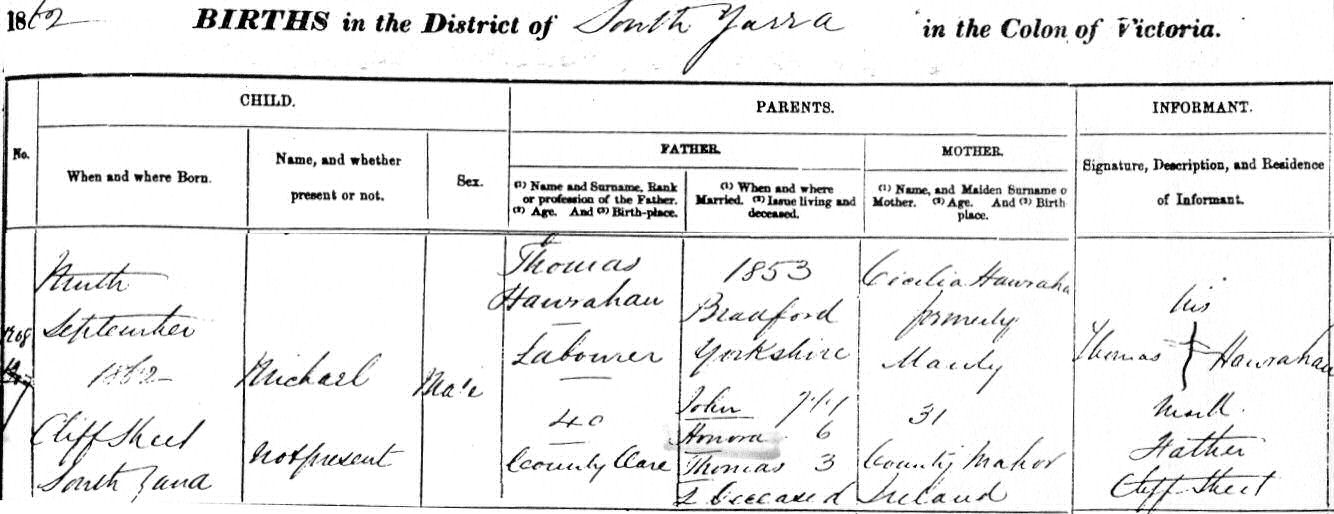 1862 BIRTHS in the District of South Yarra in the Colon of Victoria.
CHILD.
PARENTS.
INFORMANT.
No.
When and where Born.
Name, and whether
present or not.
Sex.
FATHER.
MOTHER.
(1) Name and Surname, Rank
or profession of the Father.
(2) Age. And (3) Birth-place.
(1) When and where
Married. (2) Issue living and
deceased.
(1) Name, and Maiden Surname o
Mother. (2) Age. And (3) Birth
place.
Signature, Description, and Residence
of Informant.
Ninth
September
1862
Cliff Street
South Yarra
Michael
not present
Male
Thomas
Hawrahan
Labourer
40
County Clare
1853
Bradford
Yorkshire
John
Honora 6
Thomas 3
2 Deceased
Cicilia Hawraha
formerly
31
County
Ireland
his
Thomas Hawrahan
mark
Father
Cliff Street